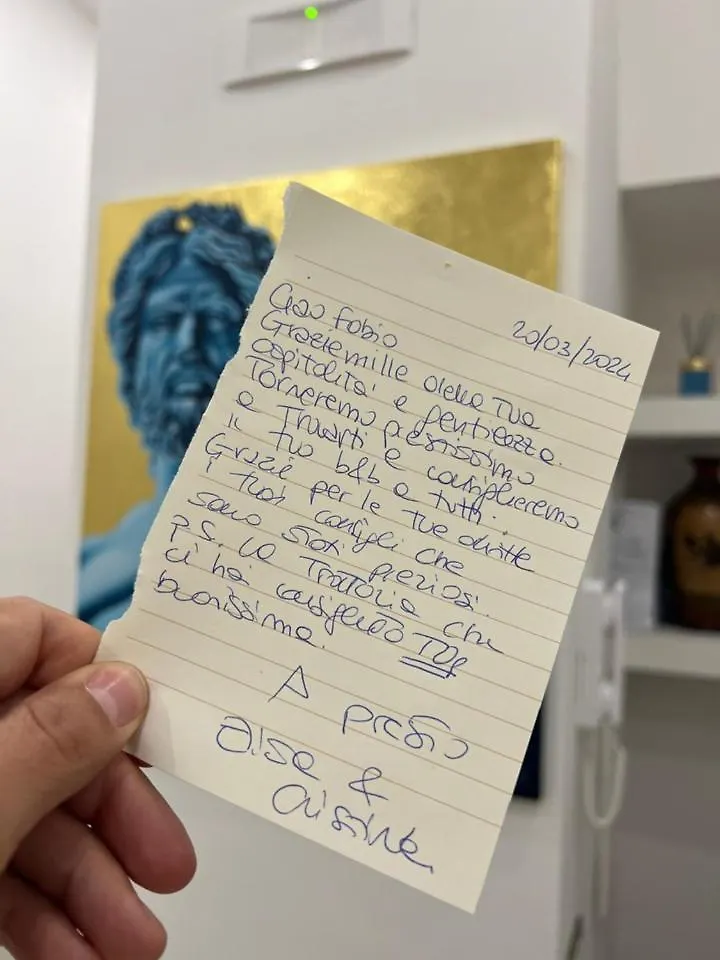 20/03/2024
Ciao Fabio
Grazie mille della tua
ospitalità e gentilezza.
Torneremo prestissimo
a trovarti e consiglieremo
il tuo b&b a tutti.
Grazie per le tue dritte
i tuoi consigli che
sono stati preziosi.
P.S. La trattoria che
ci hai consigliato TOP
buonissima.
A presto
&